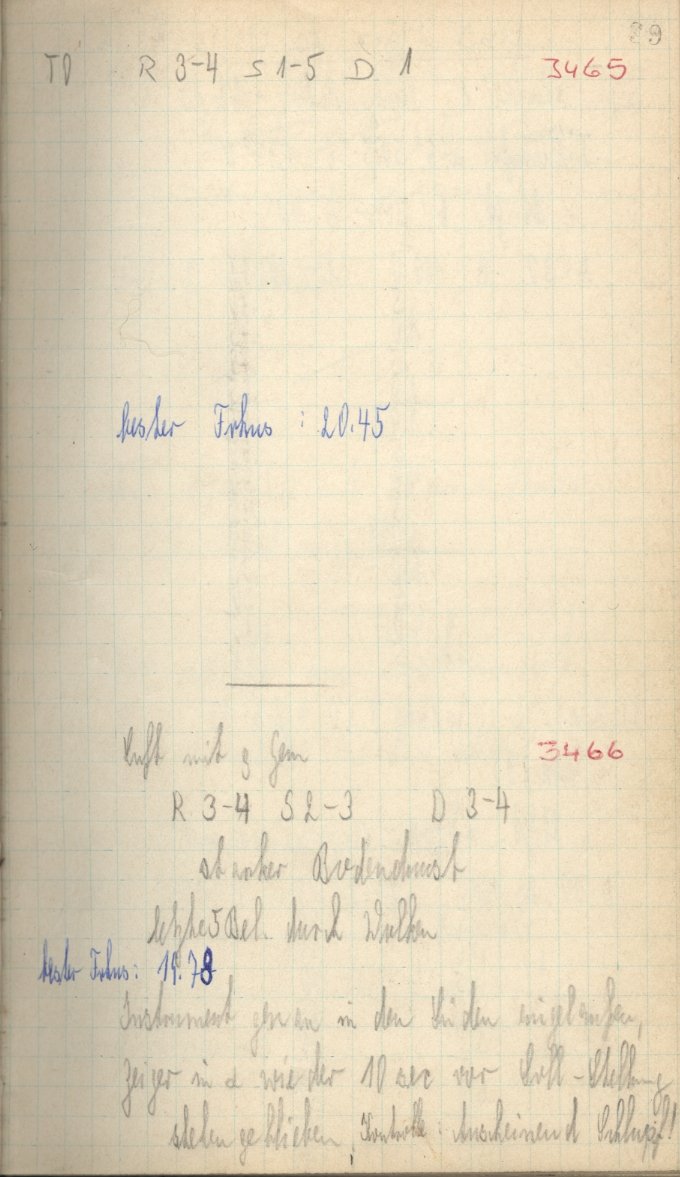 39
TD R 3-4 S 1-5 D 1 3465
bester Fokus : 20.45
Luft mit g Gem 3466
R 3-4 S 2-3 D 3-4
starker Bodendunst
letzte 5 Bel. durch Wolken
bester Fokus: 19.78
Instrument genau in den Süden eingelaufen,
Zeiger in α wieder 10 sec vor Soll-Stellung
stehen geblieben, Kontrolle: Anscheinend Schlupf!